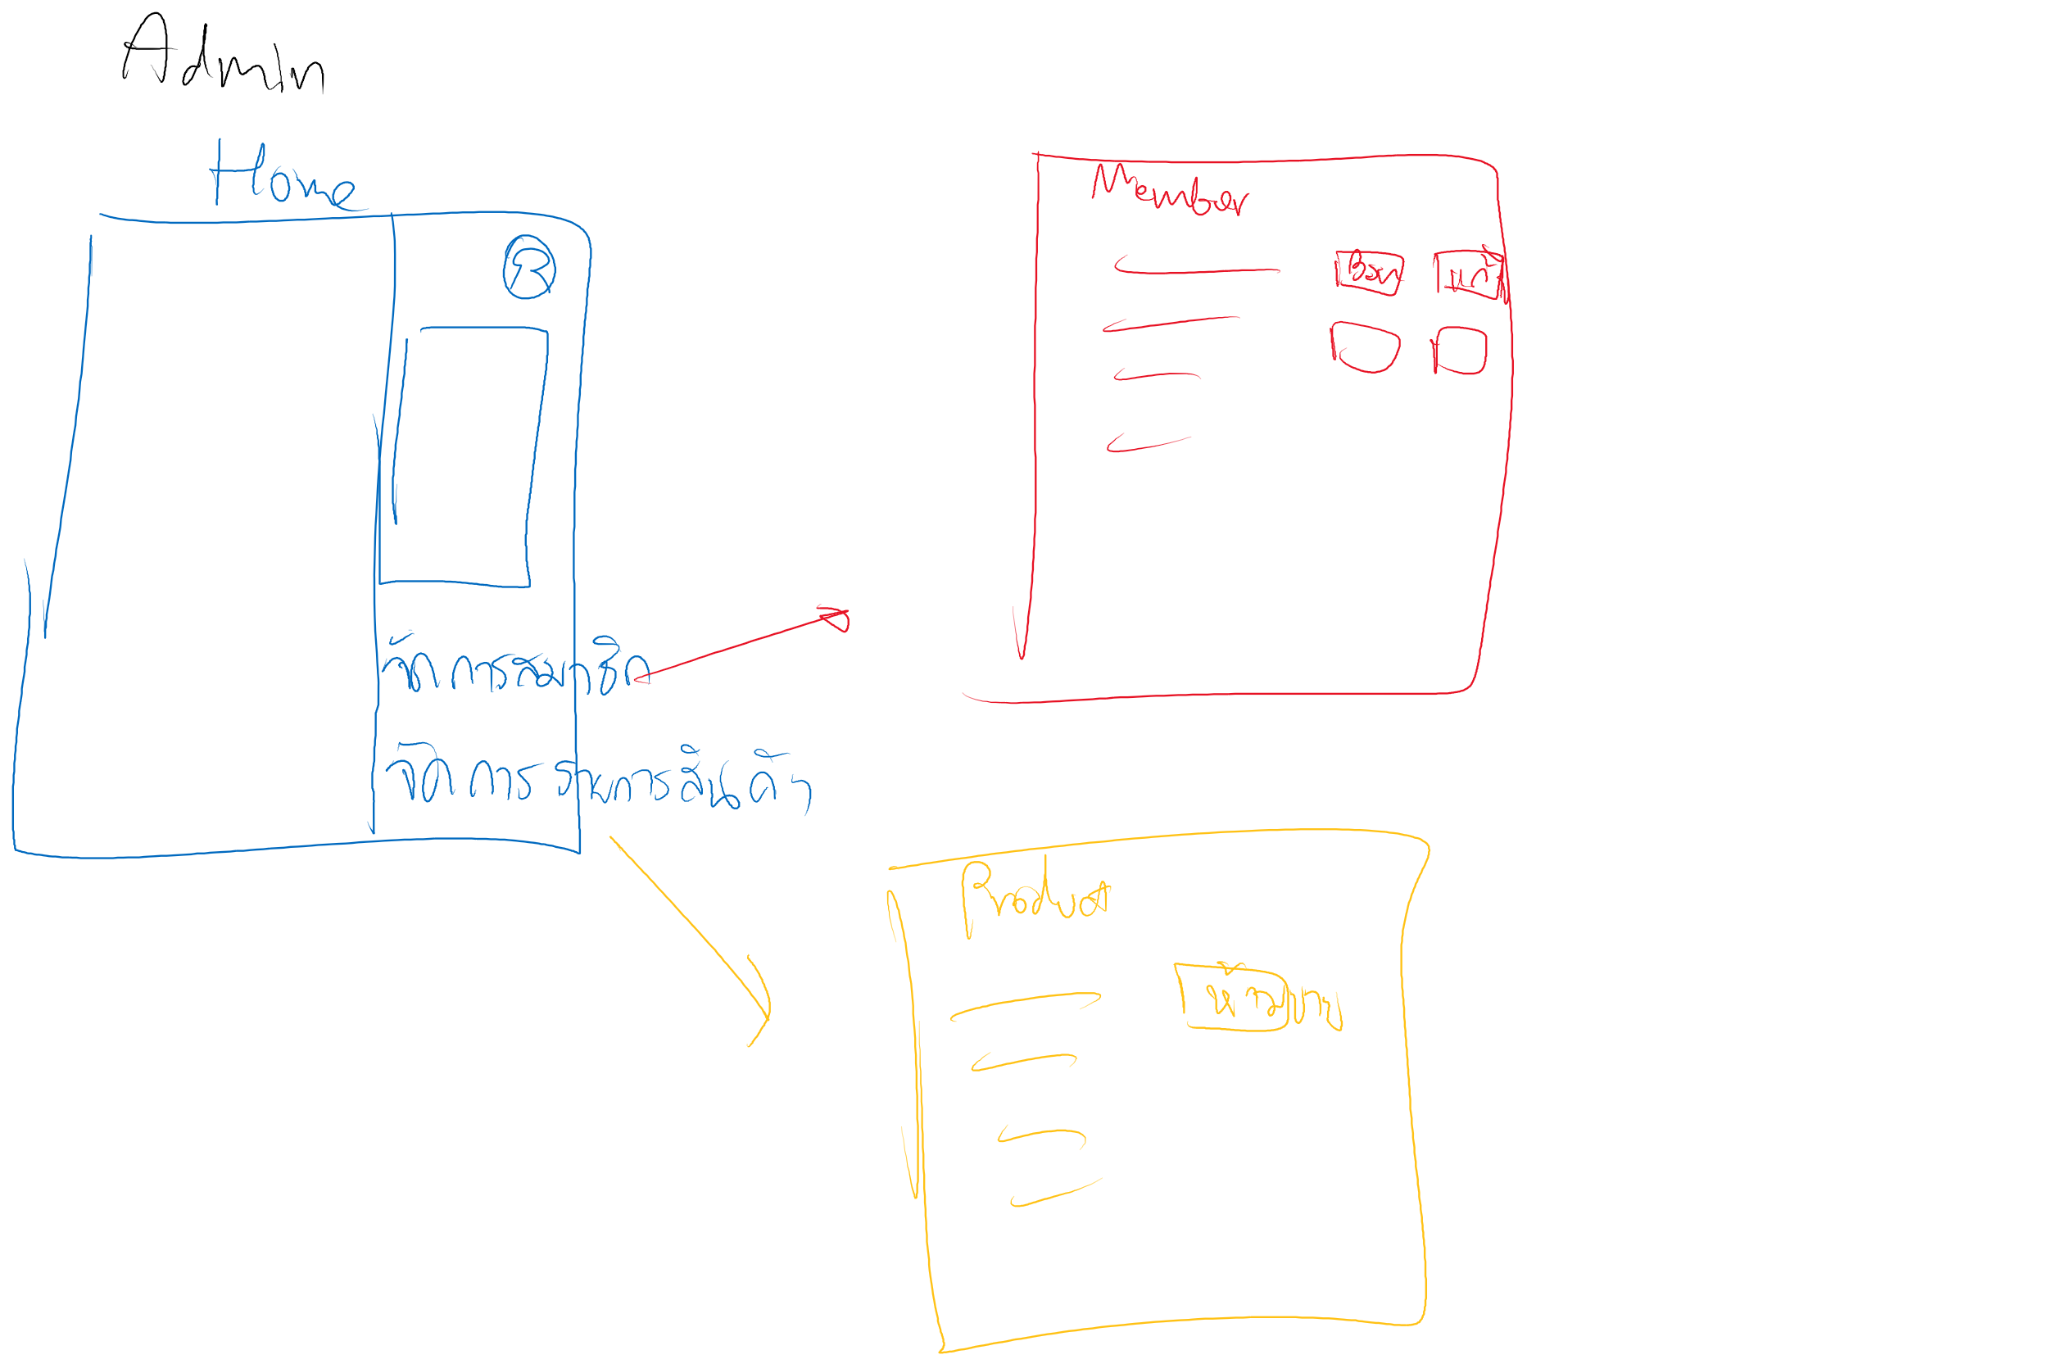 Admin
Home
จัดการสมาชิก
จัดการรายการสินค้า
Member
แก้
Product
ห้ามขาย